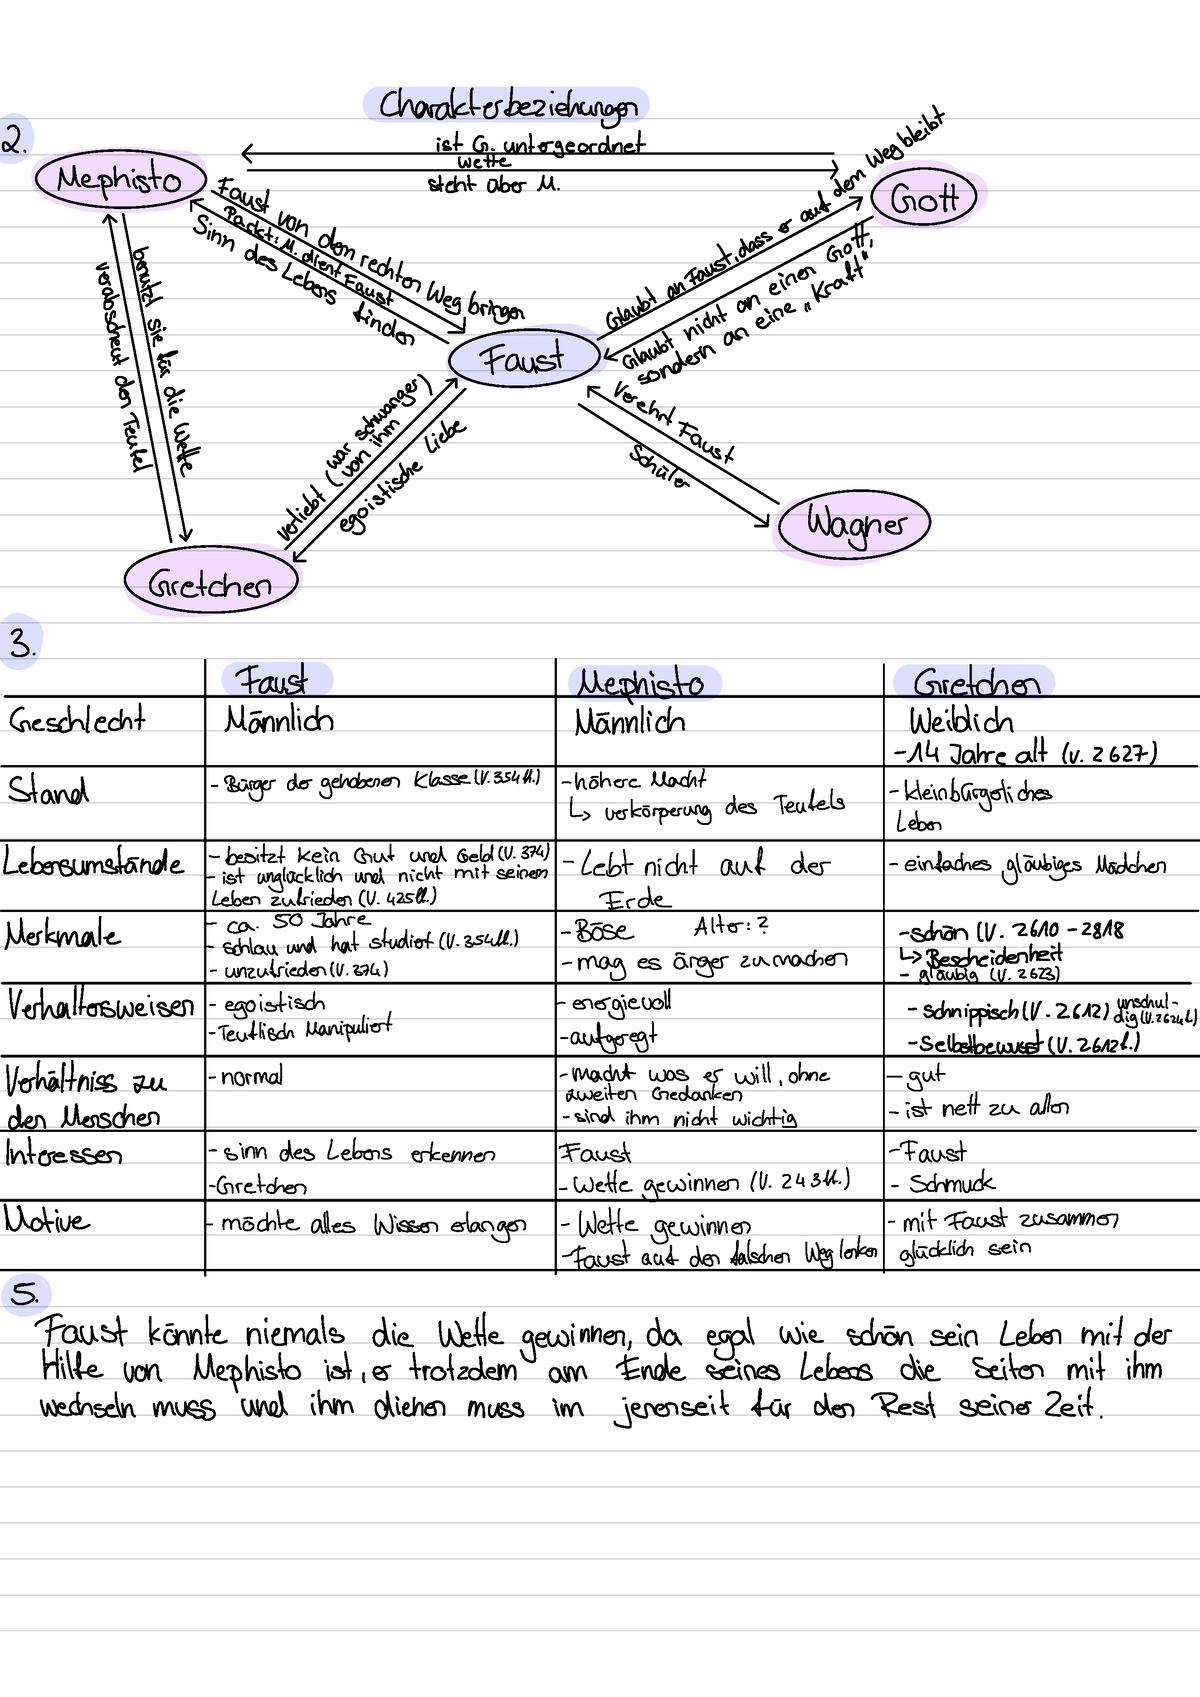 Charakterbeziehungen
2.
ist G. untergeordnet
Wette
steht über M.
Mephisto
Gott
Faust von dem rechten Weg bringen
Packt: M. dient Faust
Sinn des Lebens finden
Glaubt an Faust, dass er auf dem Weg bleibt
Glaubt nicht an einen Gott,
sondern an eine „Kraft“
benutzt sie für die Wette
verabscheut den Teufel
Faust
verliebt (war schwanger
von ihm)
egoistische Liebe
Verehrt Faust
Schüler
Wagner
Gretchen
3.
Faust
Mephisto
Gretchen
Geschlecht
Männlich
Männlich
Weiblich
-14 Jahre alt (V. 2627)
Stand
- Bürger der gehobenen Klasse (V. 354ff.)
-höhere Macht
↳ verkörperung des Teufels
- kleinbürgerliches
Leben
Lebensumstände
- besitzt kein Gut und Geld (V. 374)
- ist unglücklich und nicht mit seinem
Leben zufrieden (V. 425ff.)
- Lebt nicht auf der
Erde
- einfaches gläubiges Mädchen
Merkmale
- ca. 50 Jahre
- schlau und hat studiert (V. 354ff.)
- unzufrieden (V. 374)
-Böse Alter: ?
-mag es ärger zu machen
-schön (V. 2610 - 2818
↳ Bescheidenheit
- gläubig (V. 2623)
Verhaltensweisen
- egoistisch
-Teuflisch Manipuliert
- energievoll
-aufgeregt
- schnippisch (V. 2612) unschul-
dig (V. 2624f.)
-Selbstbewusst (V. 2612f.)
Verhältniss zu
den Menschen
- normal
-macht was er will, ohne
zweiten Gedanken
-sind ihm nicht wichtig
- gut
- ist nett zu allen
Interessen
- sinn des Lebens erkennen
-Gretchen
Faust
- Wette gewinnen (V. 243ff.)
-Faust
- Schmuck
Motive
- möchte alles Wissen erlangen
- Wette gewinnen
-Faust auf den falschen Weg lenken
- mit Faust zusammen
glücklich sein
5.
Faust könnte niemals die Wette gewinnen, da egal wie schön sein Leben mit der
Hilfe von Mephisto ist, er trotzdem am Ende seines Lebens die Seiten mit ihm
wechseln muss und ihm dienen muss im jenenseit für den Rest seiner Zeit.